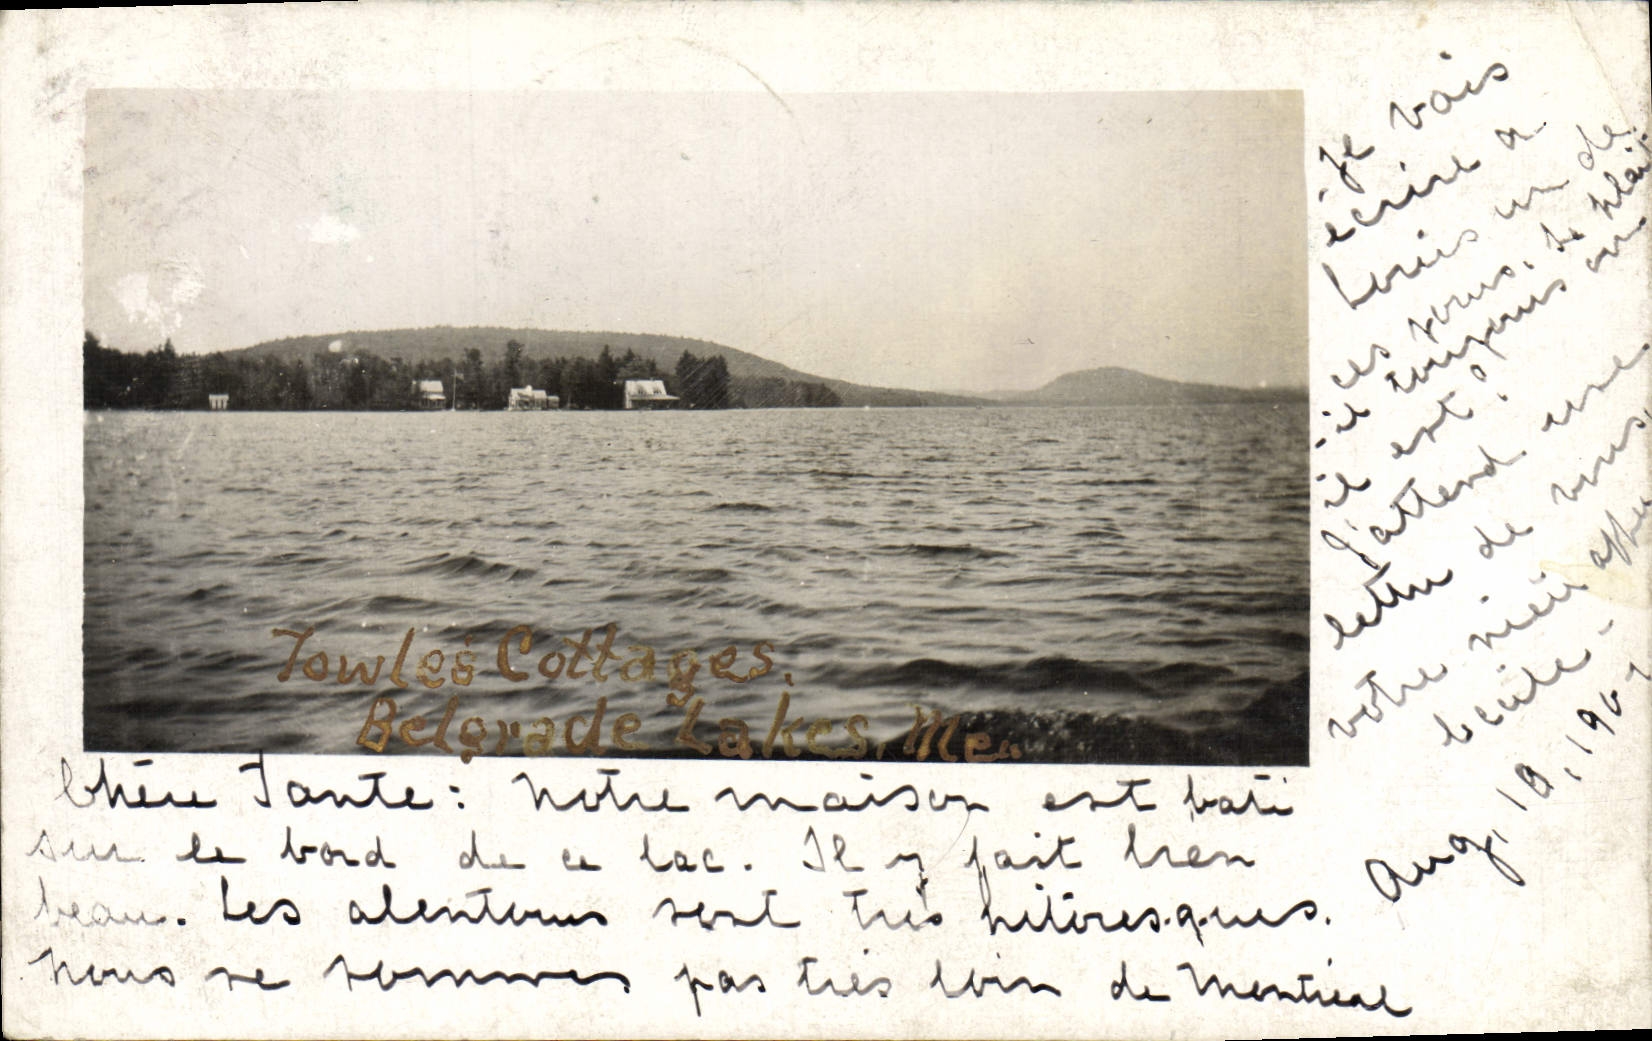 Towle's Cottages.
Belgrade Lakes, Me.
Chère Tante: Notre maison est bati
sur le bord de ce lac. Il y fait bien
beau. Les alentours sont très pitoresques.
Nous ne sommes pas très loin de Montreal
Je vais
écrire a
Louis un de
ces jours. Se plait
-il toujours ou
il est?
J'attend une
lettre de vous.
votre
Aug, 19, 1907